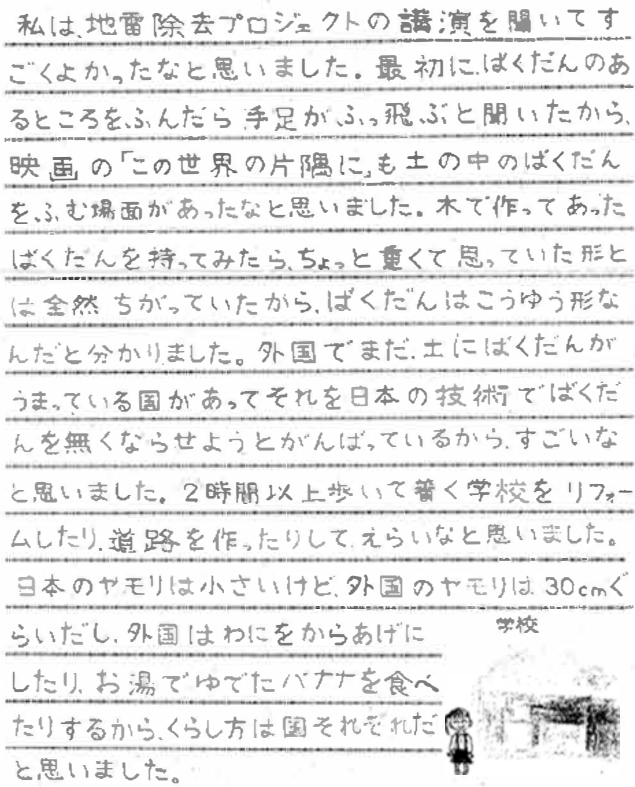 私は、地雷除去プロジェクトの講演を聞いてす
ごくよかったなと思いました。最初に、ばくだんのあ
るところを、ふんだら手足が、ふっ飛ぶと聞いたから、
映画の「この世界の片隅に」も土の中のばくだん
を、ふむ場面があったなと思いました。木で作ってあった
ばくだんを持ってみたら、ちょっと重くて思っていた形と
は全然ちがっていたから、ばくだんはこうゆう形な
んだと分かりました。外国でまだ、土にばくだんが
うまっている国があってそれを日本の技術でばくだ
んを無くならせようとがんばっているから、すごいな
と思いました。2時間以上歩いて着く学校をリフォー
ムしたり、道路を作ったりして、えらいなと思いました。
日本のヤモリは小さいけど、外国のヤモリは30cmぐ
らいだし、外国はわにをからあげに
したり、お湯でゆでたバナナを食べ
たりするから、くらし方は国それぞれだ
と思いました。
学校